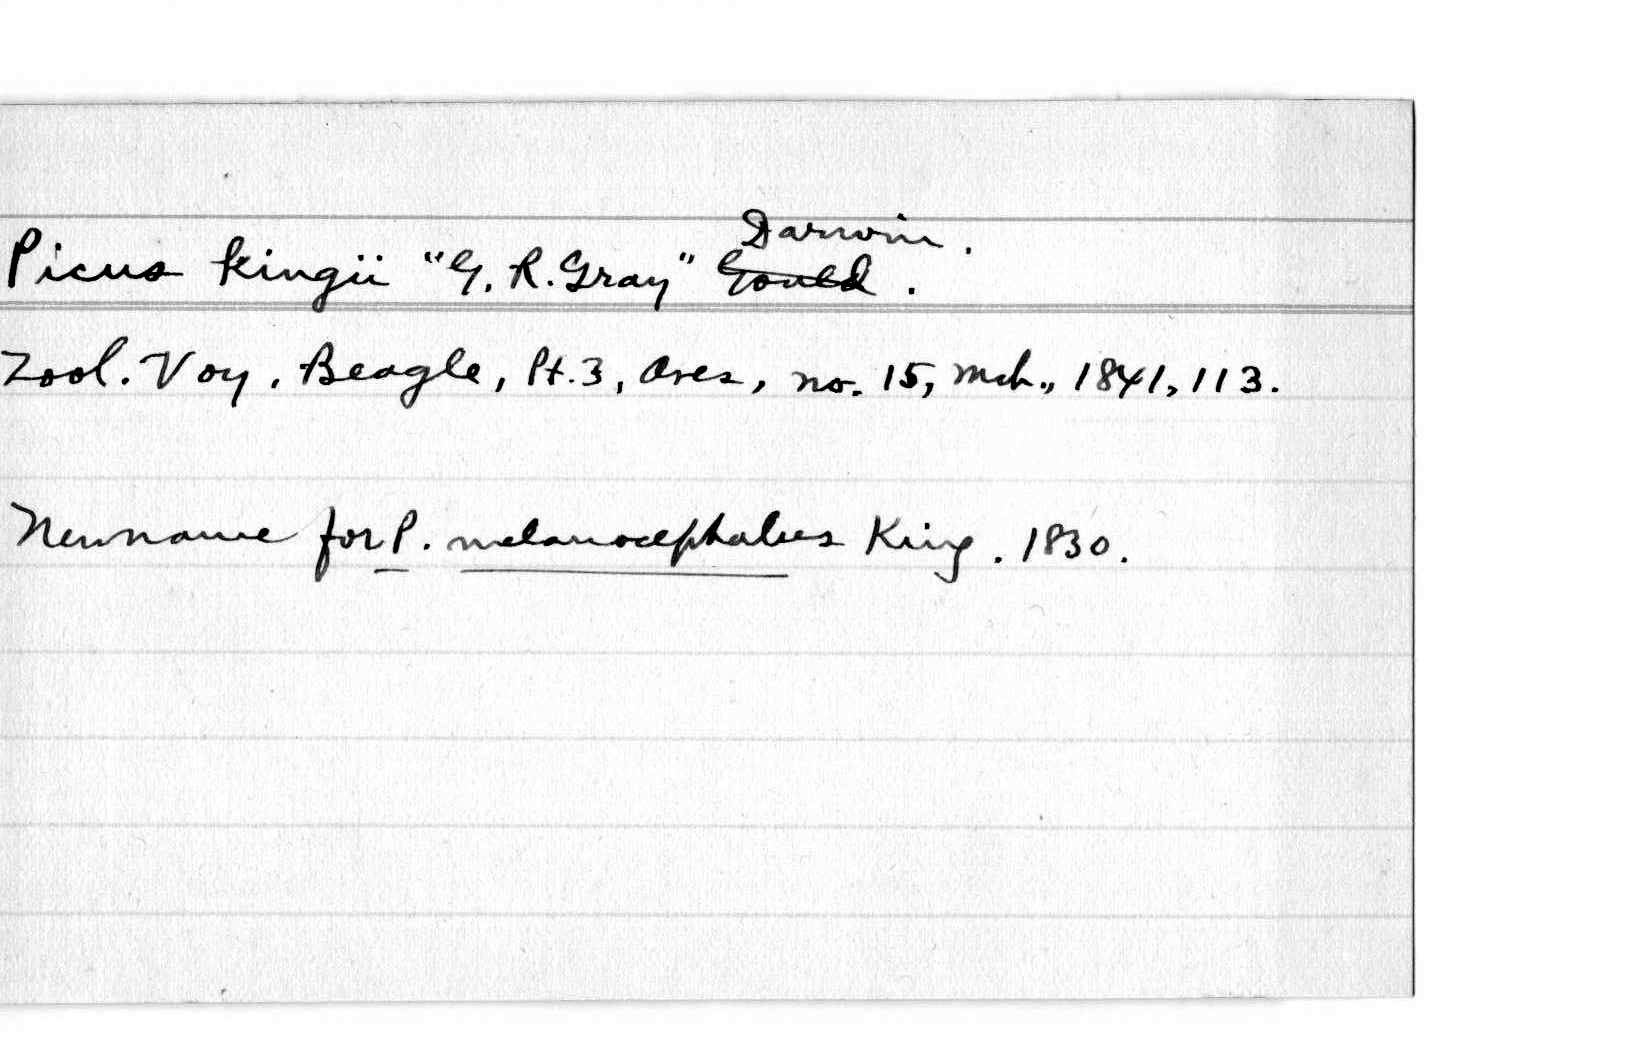 Picus kingii "G. R. Gray" Gould Darwin.
Zool. Voy. Beagle, Pt. 3, Aves, no. 15, Mch., 1841, 113.
New name for P. melanocephalus King. 1830.